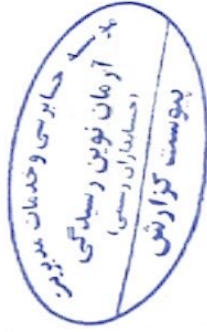 موسسه حسابرسی و خدمات مدیریتی
آرمان نوین رسیدگی
(حسابداران رسمی)
پیوست گزارش